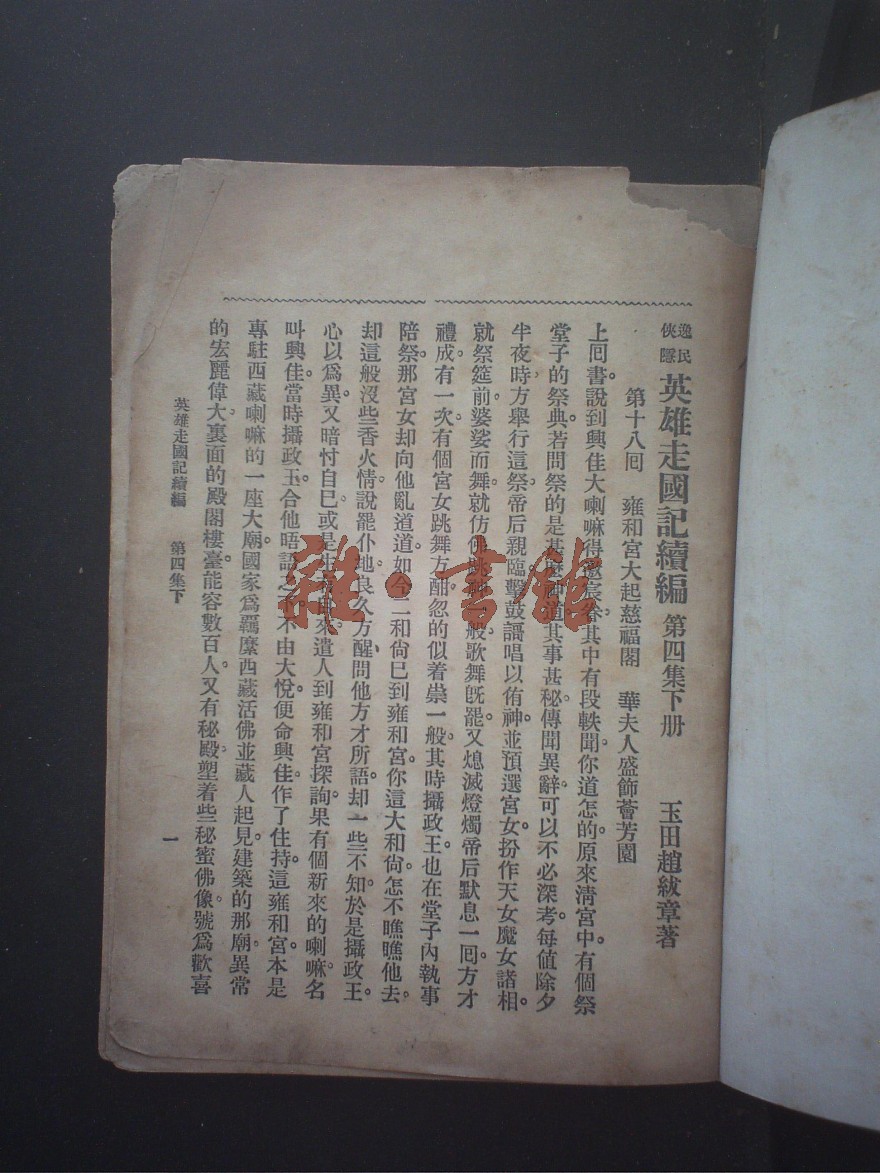 逸民俠隱 英雄走國記續編 第四集下册 玉田趙紱章著
第十八囘 雍和宮大起慈福閣 華夫人盛飾薈芳園
上囘書。說到興佳大喇嘛得邀宸眷。其中有段軼聞。你道怎的。原來淸宮中。有個祭
堂子的祭典。若問祭的是甚麽神道。其事甚秘。傳聞異辭。可以不必深考。每値除夕
半夜時。方舉行這祭。帝后親臨。擊鼓謳唱以侑神。並預選宮女。扮作天女魔女諸相。
就祭筵前。婆娑而舞。就仿佛跳神一般。歌舞旣罷。又熄滅燈燭。帝后默息一囘。方才
禮成。有一次。有個宮女跳舞方酣。忽的似着祟一般。其時攝政王也在堂子內執事
陪祭。那宮女却向他亂道道。如今二和尙巳到雍和宮。你這大和尙。怎不瞧瞧他去。
却這般沒些香火情。說罷仆地。良久方醒。問他方才所語。却一些不知。於是攝政王。
心以爲異。又暗忖自巳。或是生有自來。遣人到雍和宮探詢。果有個新來的喇嘛。名
叫興佳。當時攝政王。合他晤語之下。不由大悅。便命興佳。作了住持。這雍和宮本是
專駐西藏喇嘛的一座大廟。國家爲羈縻西藏活佛並藏人起見。建築的那廟。異常
的宏麗偉大。裏面的殿閣樓臺。能容數百人。又有秘殿。塑着些秘蜜佛像。號爲歡喜
英雄走國記續編 第四集下 一
雜·書館